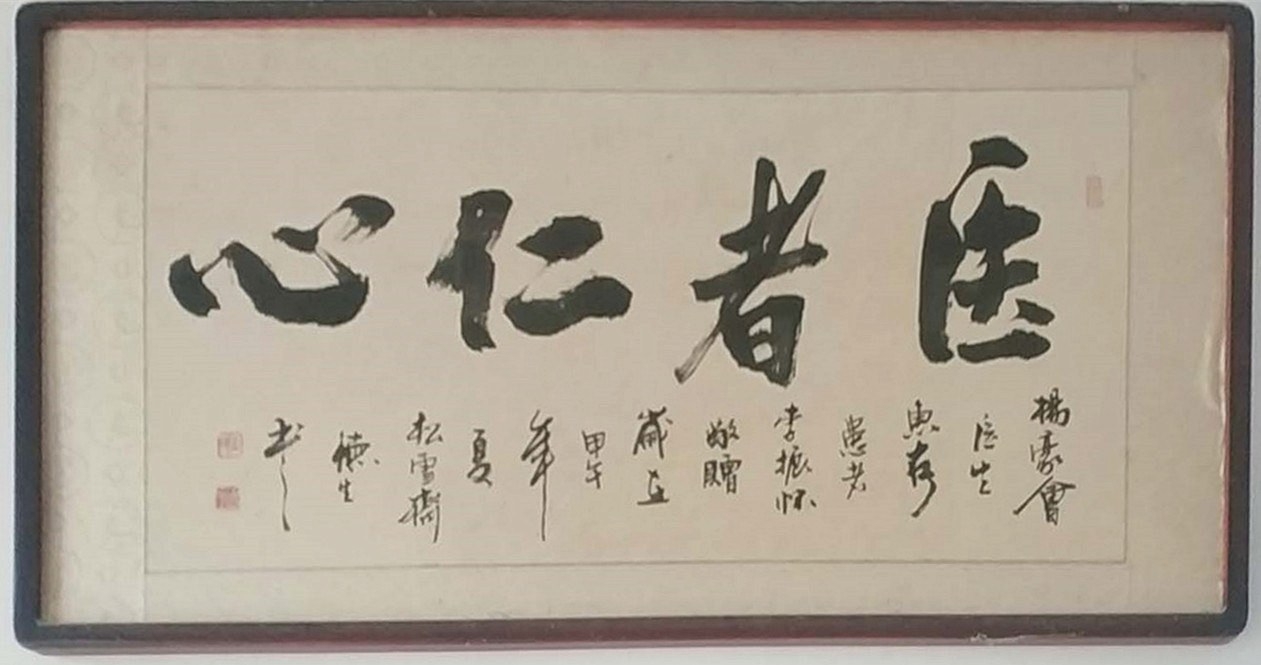 医者仁心
楊豪會
医生
惠存
患者
李振怀
敬贈
歲在
甲午
年
夏
松雪齋
德生
书之